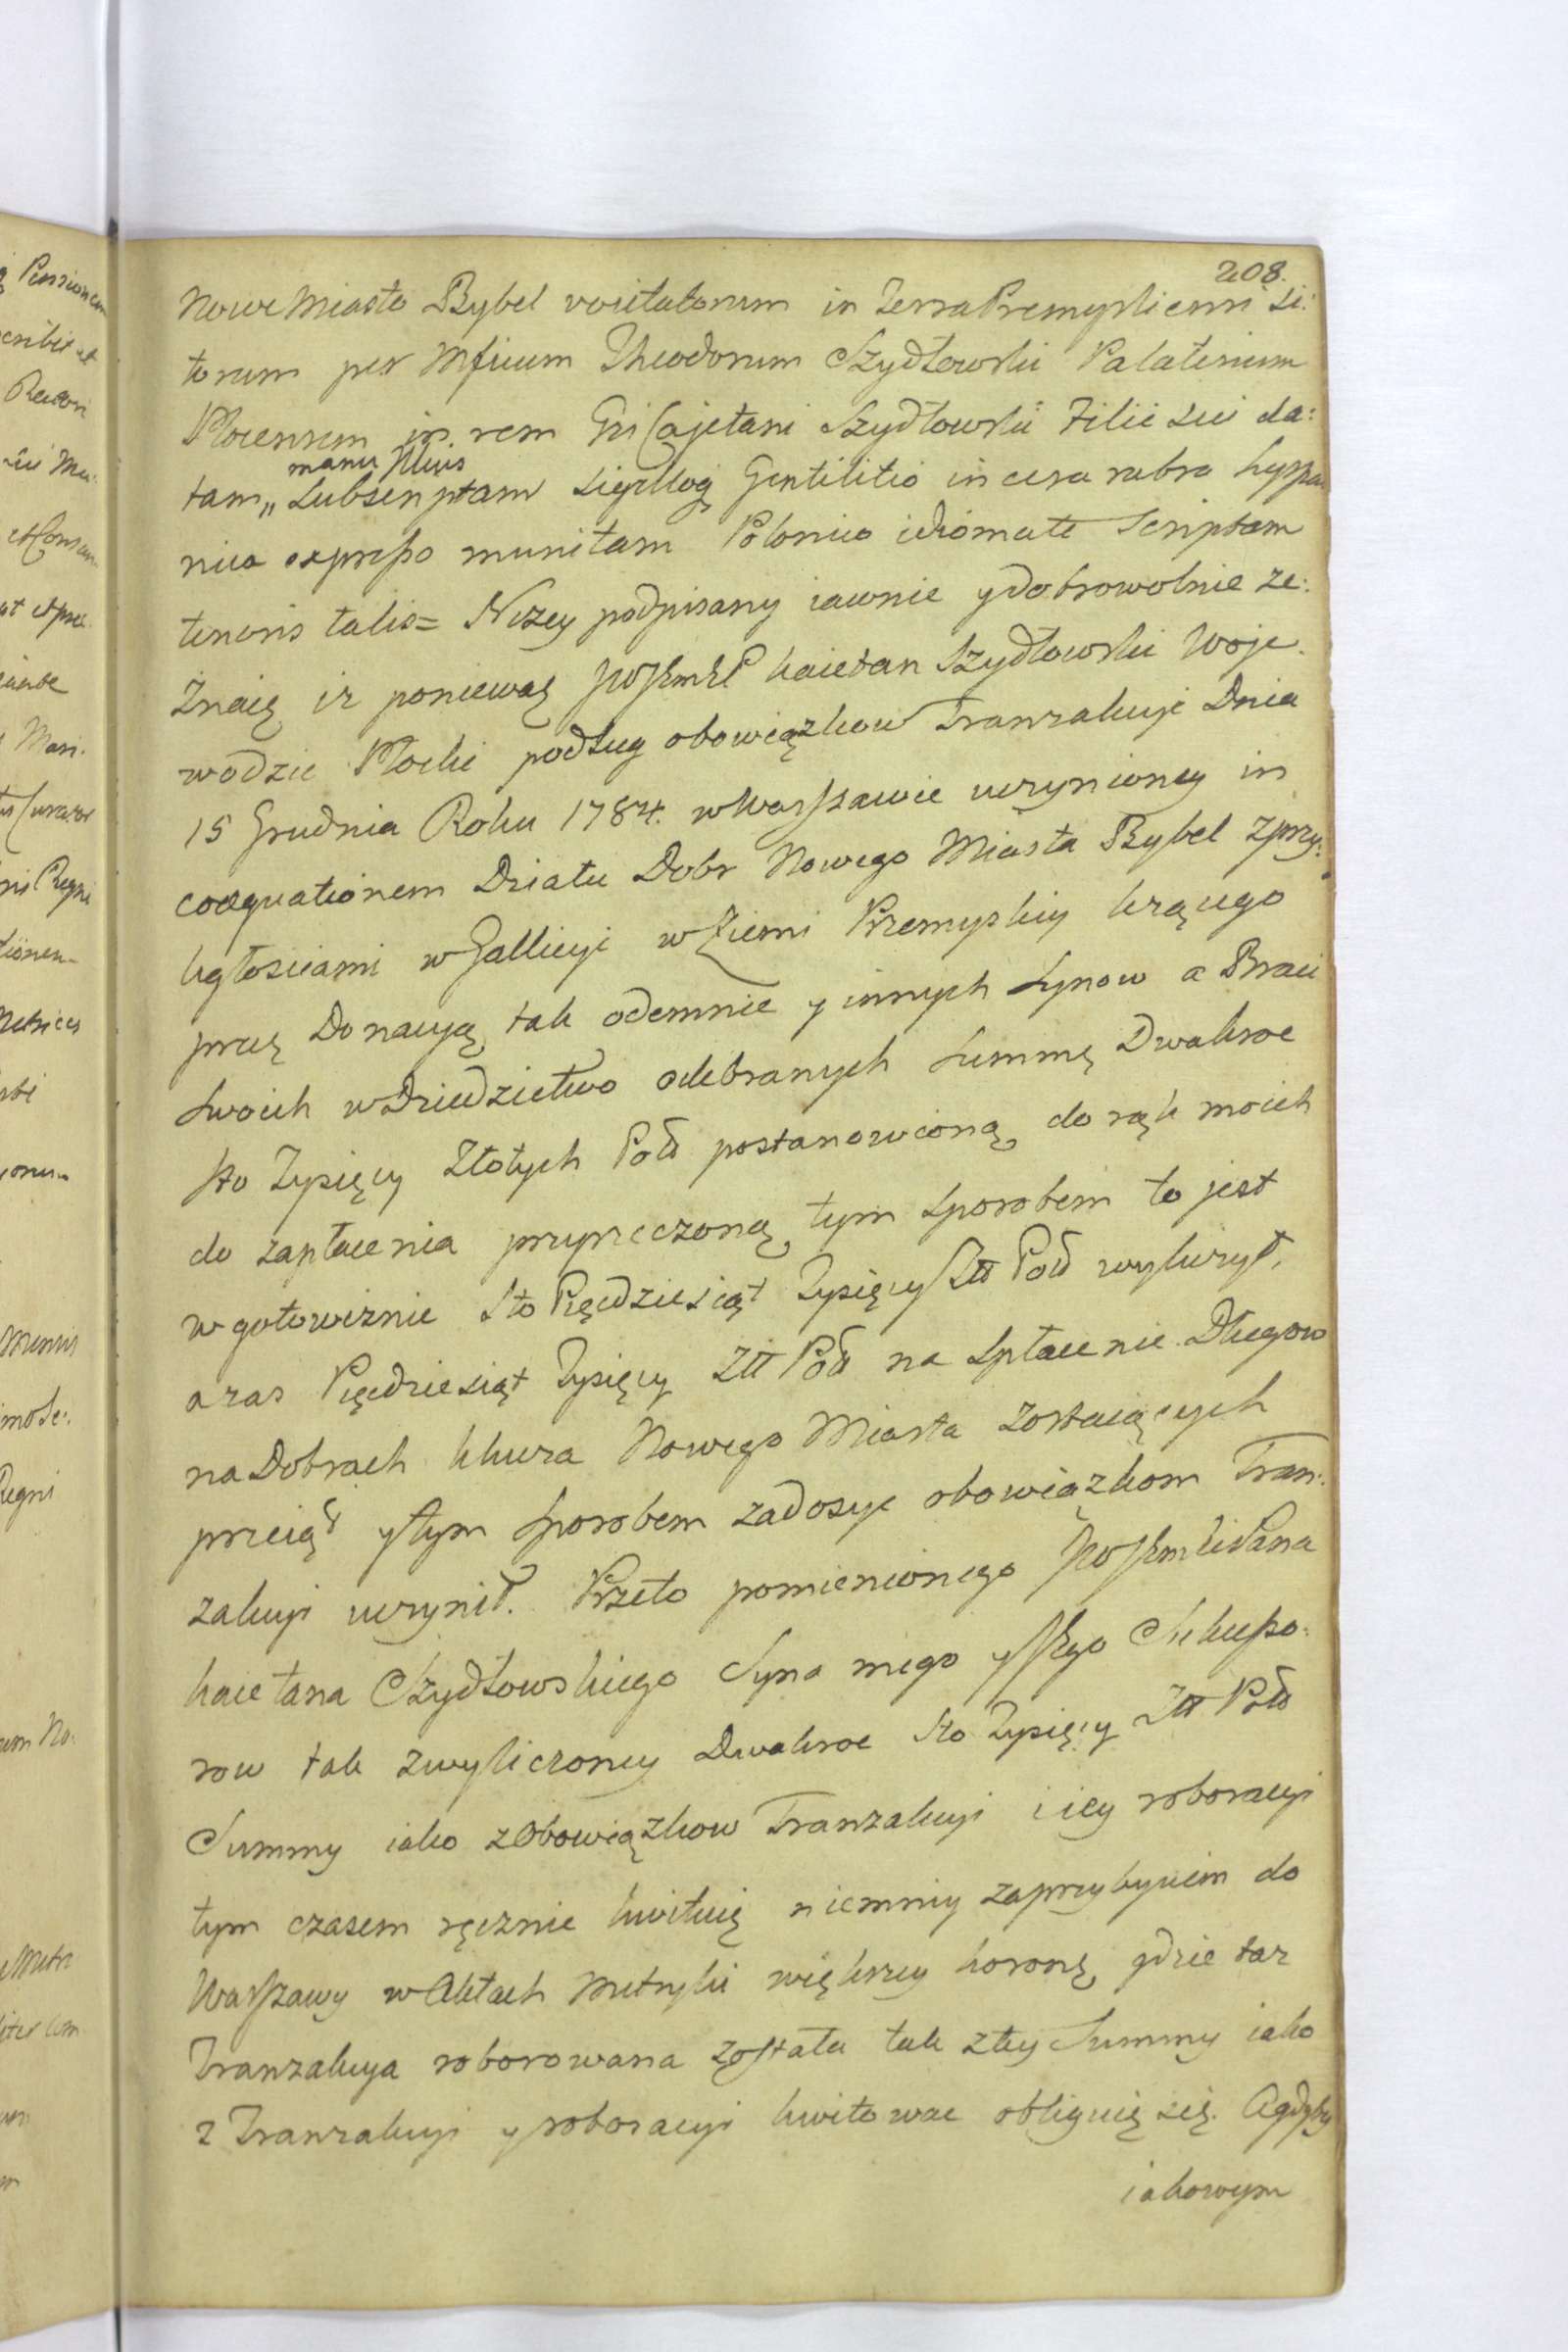 208.
Nowe Miasto Bybel vocitatorum in Terra Premysliensi si:
torum per Mficum Theodorum Szydłowski Palatinum
Plocensem in rem Gsi Cajetani Szydłowski Filii sui da:
tam „ manu Ipsius Subscriptam Sigilloq Gentilitio in cera rubra hyspa
nica expresso munitam Polonico idiomate Scriptam
tenoris talis = Niżey podpisany iawnie y dobrowolnie ze:
znaię iz poniewaz Kaietan Szydłowski Woje
wodzic Płocki podług obowiązkow Tranzakcyi Dnia
15 Grudnia Roku 1784. w Warszawie uczynioney in
coaequationem Działu Dobr Nowego Miasta Bybel z przy:
ległosciami w Gallicyi w Ziemi Przemyskiey lezącego
przez Donacyą tak odemnie y innych Synow a Braci
Swoich w Dziedzictwo odebranych Summę Dwakroc
sto Tysięcy Złotych Pols postanowioną do rąk moich
do zapłacenia przyrzeczoną tym sposobem to jest
w gotowiznie sto Pięcdziesiąt Tysięcy Złł Pols wyliczył,
a zas Pięcdziesiąt Tysięcy Złł Pols na spłacenie Długow
na Dobrach Klucza Nowego Miasta zostaiących
przeiął y tym sposobem zadosyc obowiązkom Tran:
zakcyi uczynił. Przeto pomienionego Pana
Kaietana Szydłowskiego Syna mego y Jego Sukcesso:
row tak z wyliczoney Dwakroc sto Tysięcy Złł Pols
Summy iako z Obowiązkow Tranzakcyi i iey roboracyi
tym czasem ręcznie kwituię niemniey za przybyciem do
Warszawy w Aktach Metryki większey koronę gdzie taz
Tranzakcya roborowana została tak z tey Summy iako
z Tranzakcyi y roboracyi kwitowac obliguię się. A gdyby
iakowym